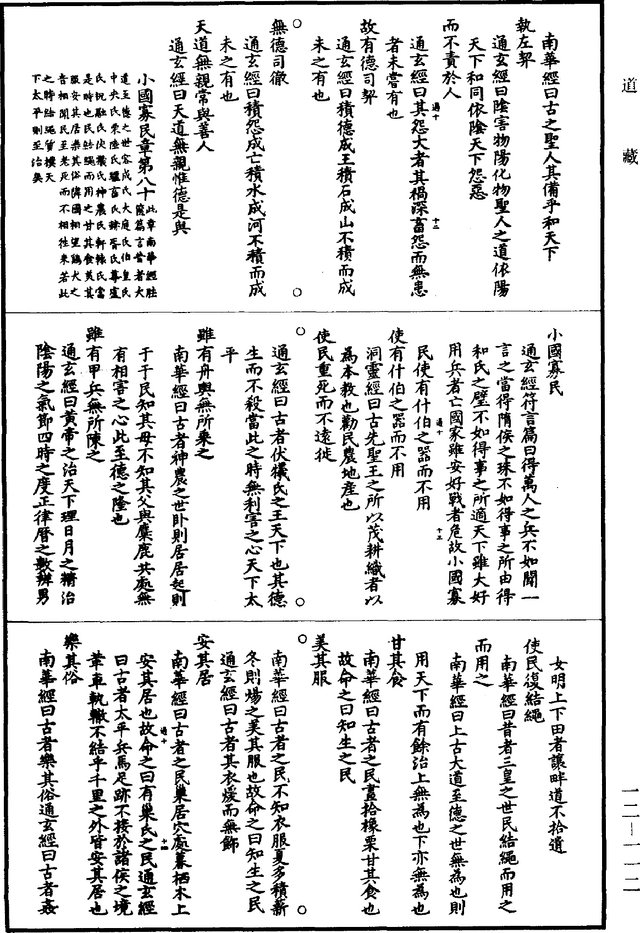 道藏
南華經曰古之聖人其備乎和天下
執左契
通玄經曰陰害物陽化物聖人之道依陽
天下和同依陰天下怨惡
而不責於人
通玄經曰其怨大者其禍深畜怨而無患
者未嘗有也
故有德司契
通玄經曰積德成王積石成山不積而成
未之有也
無德司徹
通玄經曰積怨成亡積水成河不積而成
未之有也
天道無親常與善人
通玄經曰天道無親惟德是與
小國寡民章第八十此章南華經胠
篋篇言昔者大
道至德之世容成氏大庭氏伯皇氏
中央氏栗陸氏驪畜氏赫胥氏尊盧
氏祝融氏伏犧氏神農氏軒轅氏當
是時也民結繩而用之甘其食美其
服安其居樂其俗鄰國相望鷄犬之
音相聞民至老死而不相往來若此
之時結繩質樸天
下太平則至治矣
小國寡民
通玄經符言篇曰得萬人之兵不如聞一
言之當得隋侯之珠不如得事之所由得
和氏之璧不如得事之所適天下雖大好
用兵者亡國家雖安好戰者危故小國寡
民使有什伯之器而不用
使有什伯之器而不用
洞靈經曰古先聖王之所以茂耕織者以
為本教也勸民農地產也
使民重死而不遠徙
通玄經曰古者伏犧氏之王天下也其德
生而不殺當此之時無利害之心天下太
平
雖有舟輿無所乘之
南華經曰古者神農之世卧則居居起則
于于民知其母不知其父與麋鹿共處無
有相害之心此至德之隆也
雖有甲兵無所陳之
通玄經曰黃帝之治天下理日月之精治
陰陽之氣節四時之度正律曆之數辨男
女明上下田者讓畔道不拾遺
使民復結繩
南華經曰昔者三皇之世民結繩而用之
而用之
南華經曰上古大道至德之世無為也則
用天下而有餘治上無為也下亦無為也
甘其食
南華經曰古者之民晝拾橡栗甘其食也
故命之曰知生之民
美其服
南華經曰古者之民不知衣服夏多積薪
冬則煬之美其服也故命之曰知生之民
通玄經曰古者其衣煖而無飾
安其居
南華經曰古者之民巢居穴處暮栖木上
安其居也故命之曰有巢氏之民通玄經
曰古者太平兵馬足跡不接於諸侯之境
革車軌轍不結乎千里之外皆安其居也
樂其俗
南華經曰古者樂其俗通玄經曰古者姦
一二—一一二